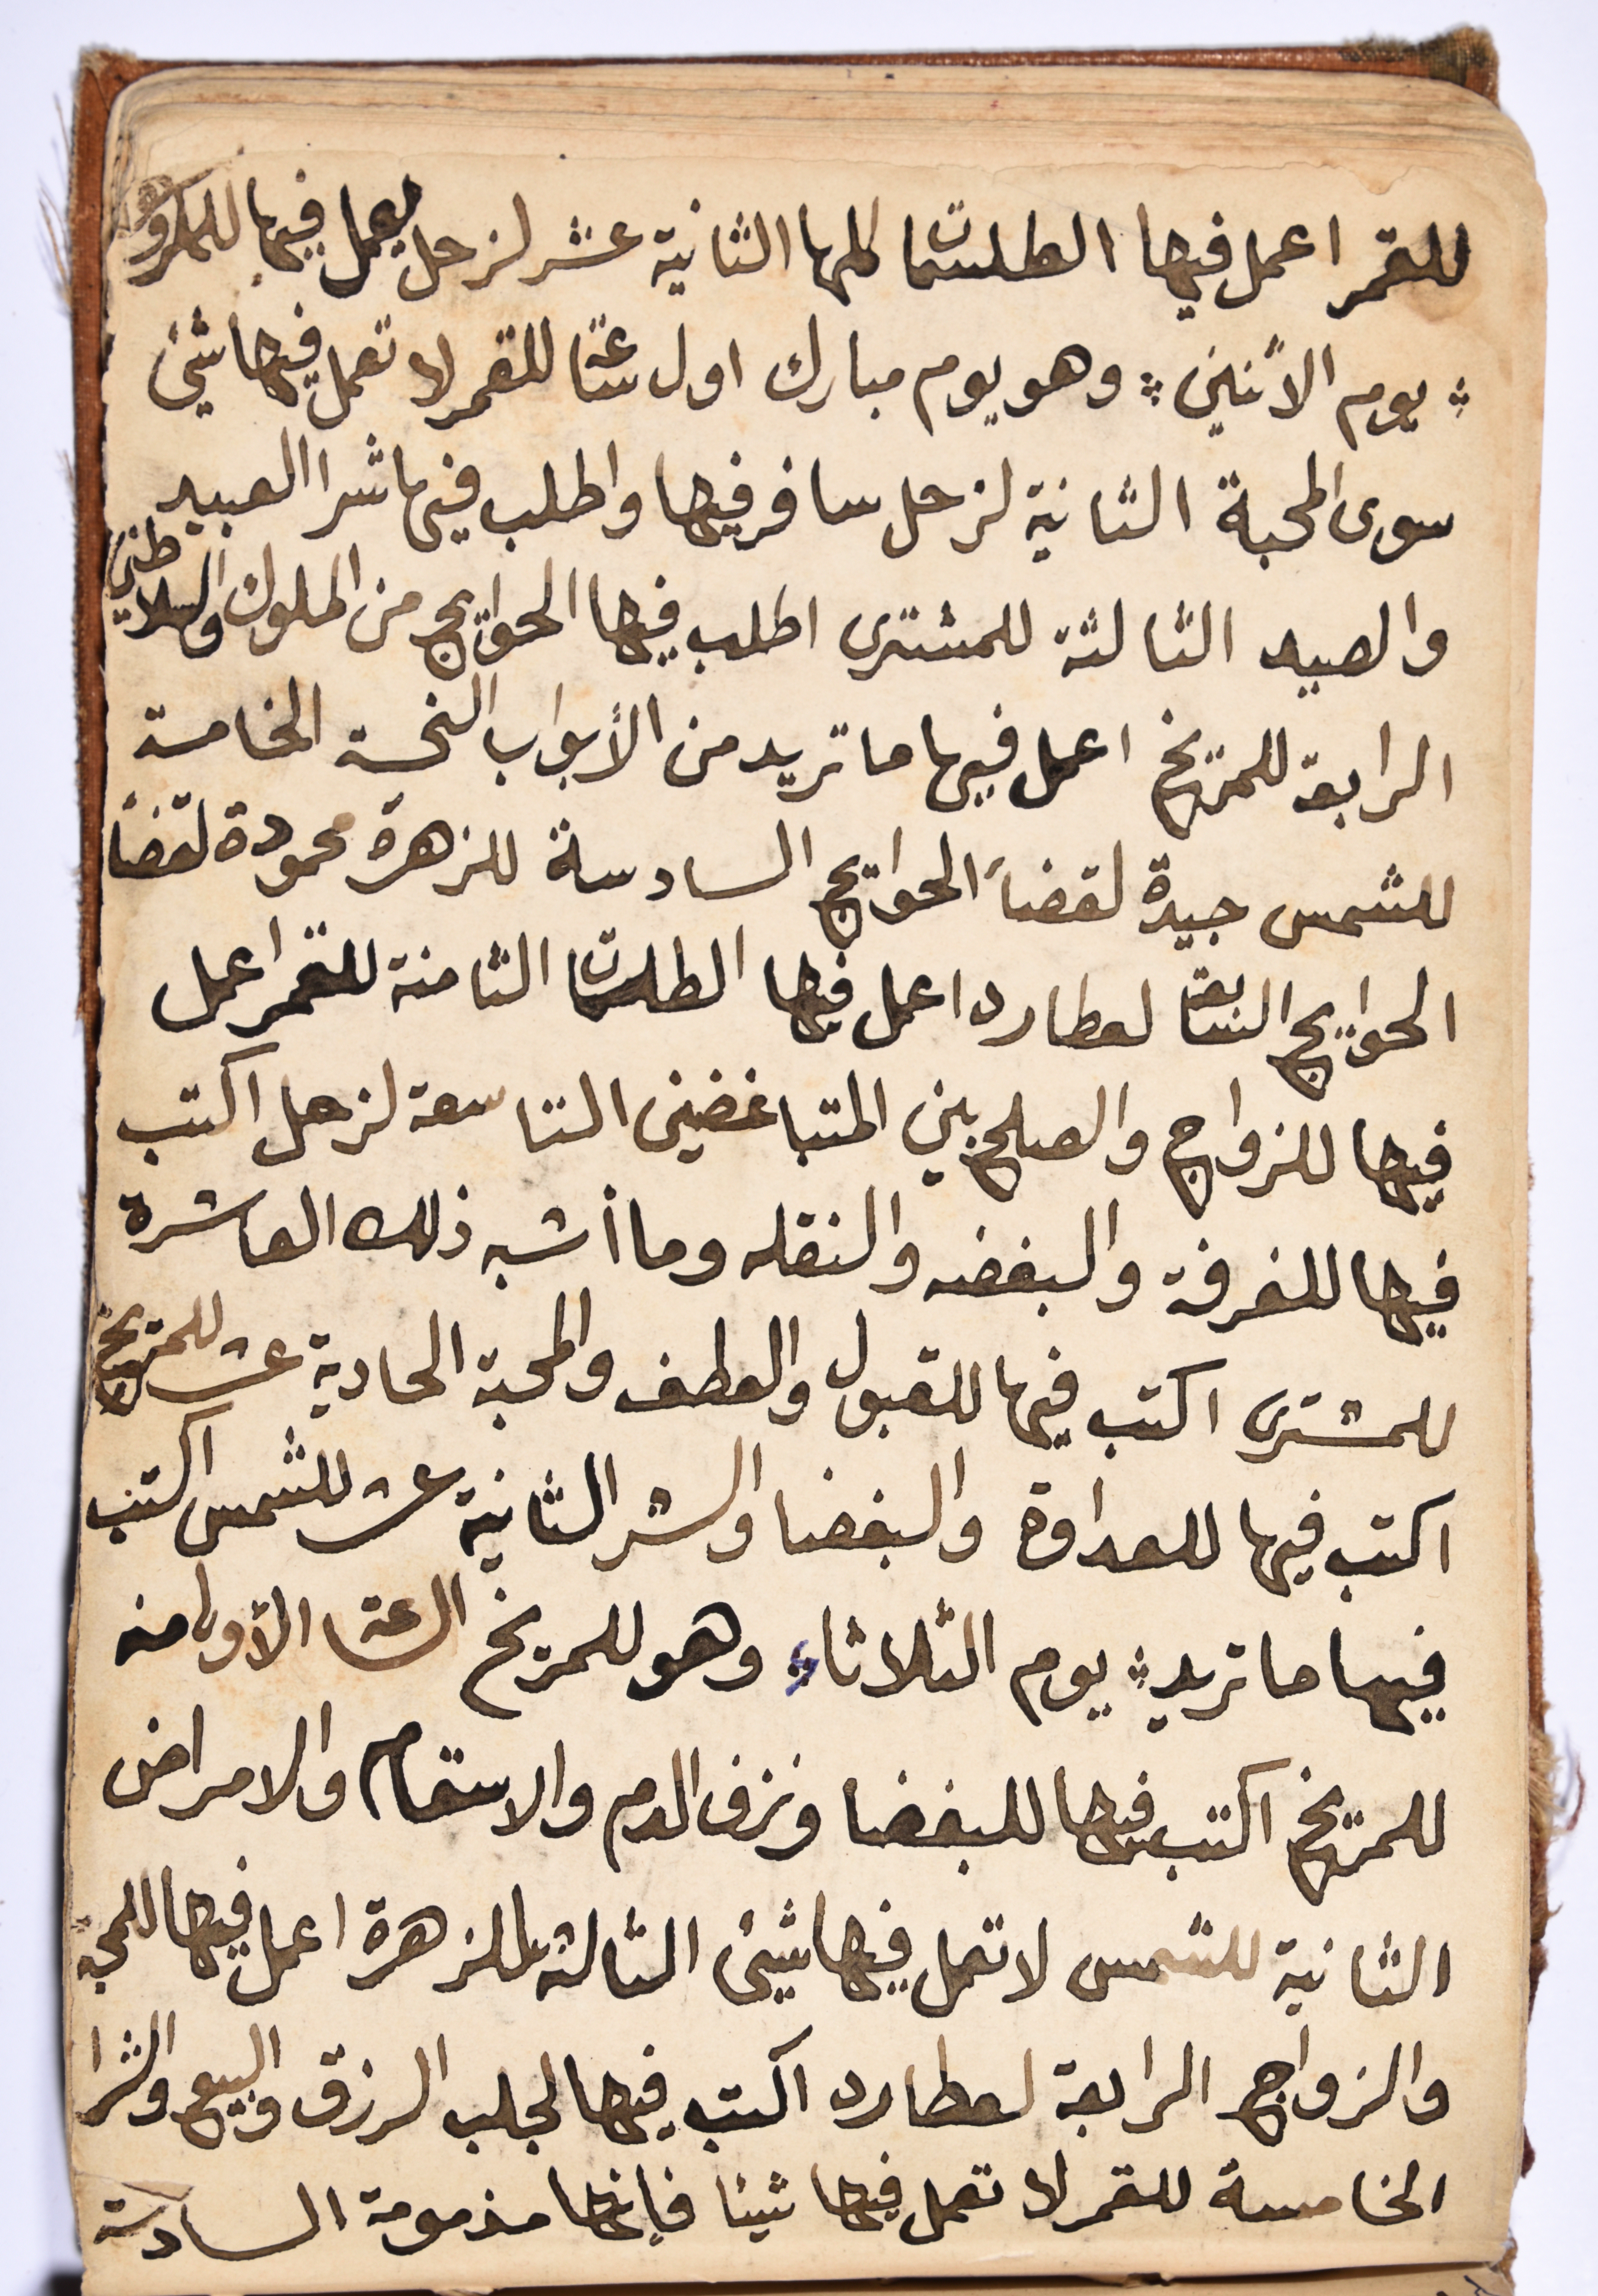 للقمر اعمل فيها الطلسمات كلها الثانية عشر لزحل يعمل فيها للمكروه
يوم الاثنين وهو يوم مبارك اول ساعة للقمر لا تعمل فيها شئ
سوى المحبة الثانية لزحل سافر فيها واطلب فيها شرا العبيد
والصيد الثالثة للمشترى اطلب فيها الحوايج من الملوك والسلاطين
الرابعة للمريخ اعمل فيها ما تريد من الأبواب النحسة الخامسة
للشمس جيدة لقضآ الحوايج السادسة للزهرة محمودة لقضا
الحوايج السابعة لعطارد اعمل فيها الطلسمات الثامنة للقمر اعمل
فيها للزواج والصلح بين المتباغضين التاسعة لزحل اكتب
فيها للفرقة والبغضه والنقله وما أشبه ذلك العاشرة
للمشترى اكتب فيها للقبول والعطف والمحبة الحادية عشر للمريخ
اكتب فيها للعداوة والبغضا والشر الثانية عشر للشمس اكتب
فيها ما تريد يوم الثلاثاء وهو للمريخ الساعة الأولا منه
للمريخ اكتب فيها للبغضا ونزف الدم والاسقام والامراض
الثانية للشمس لا تعمل فيها شيئ الثالثة للزهرة اعمل فيها للمحبة
والزواج الرابعة لعطارد اكتب فيها لجلب الرزق والبيع والشرا
الخامسة للقمر لا تعمل فيها شيئا فإنها مذمومة السادسة